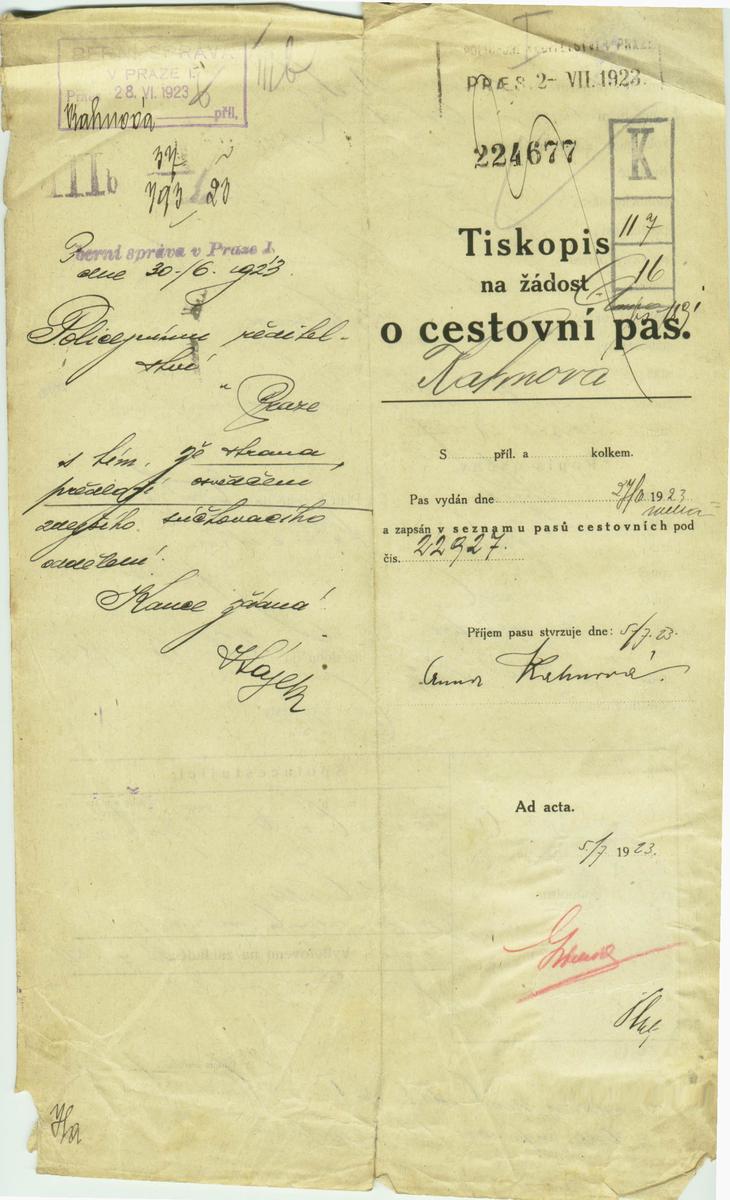 BERNÍ SPRÁVA
V PRAZE I.
28. VI. 1923
příl.
Kahnová
IIIb
37
793 23
Berní správa v Praze I.
dne 30./6. 1923.
Policejnímu ředitel-
ství
Praze
s tím, že strana
předloží osvědčení
zdejšího súčtovacího
oddělení.
Kauce žádná!
Hájek
PRAES. 2- VII. 1923.
224677
K
117
16
Tiskopis
na žádost
o cestovní pas.
Kahnová
S příl. a kolkem.
Pas vydán dne 1923
a zapsán v seznamu pasů cestovních pod
čís. 22927.
Příjem pasu stvrzuje dne: 5/7. 23.
Anna Kahnová.
Ad acta.
5/7. 1923.